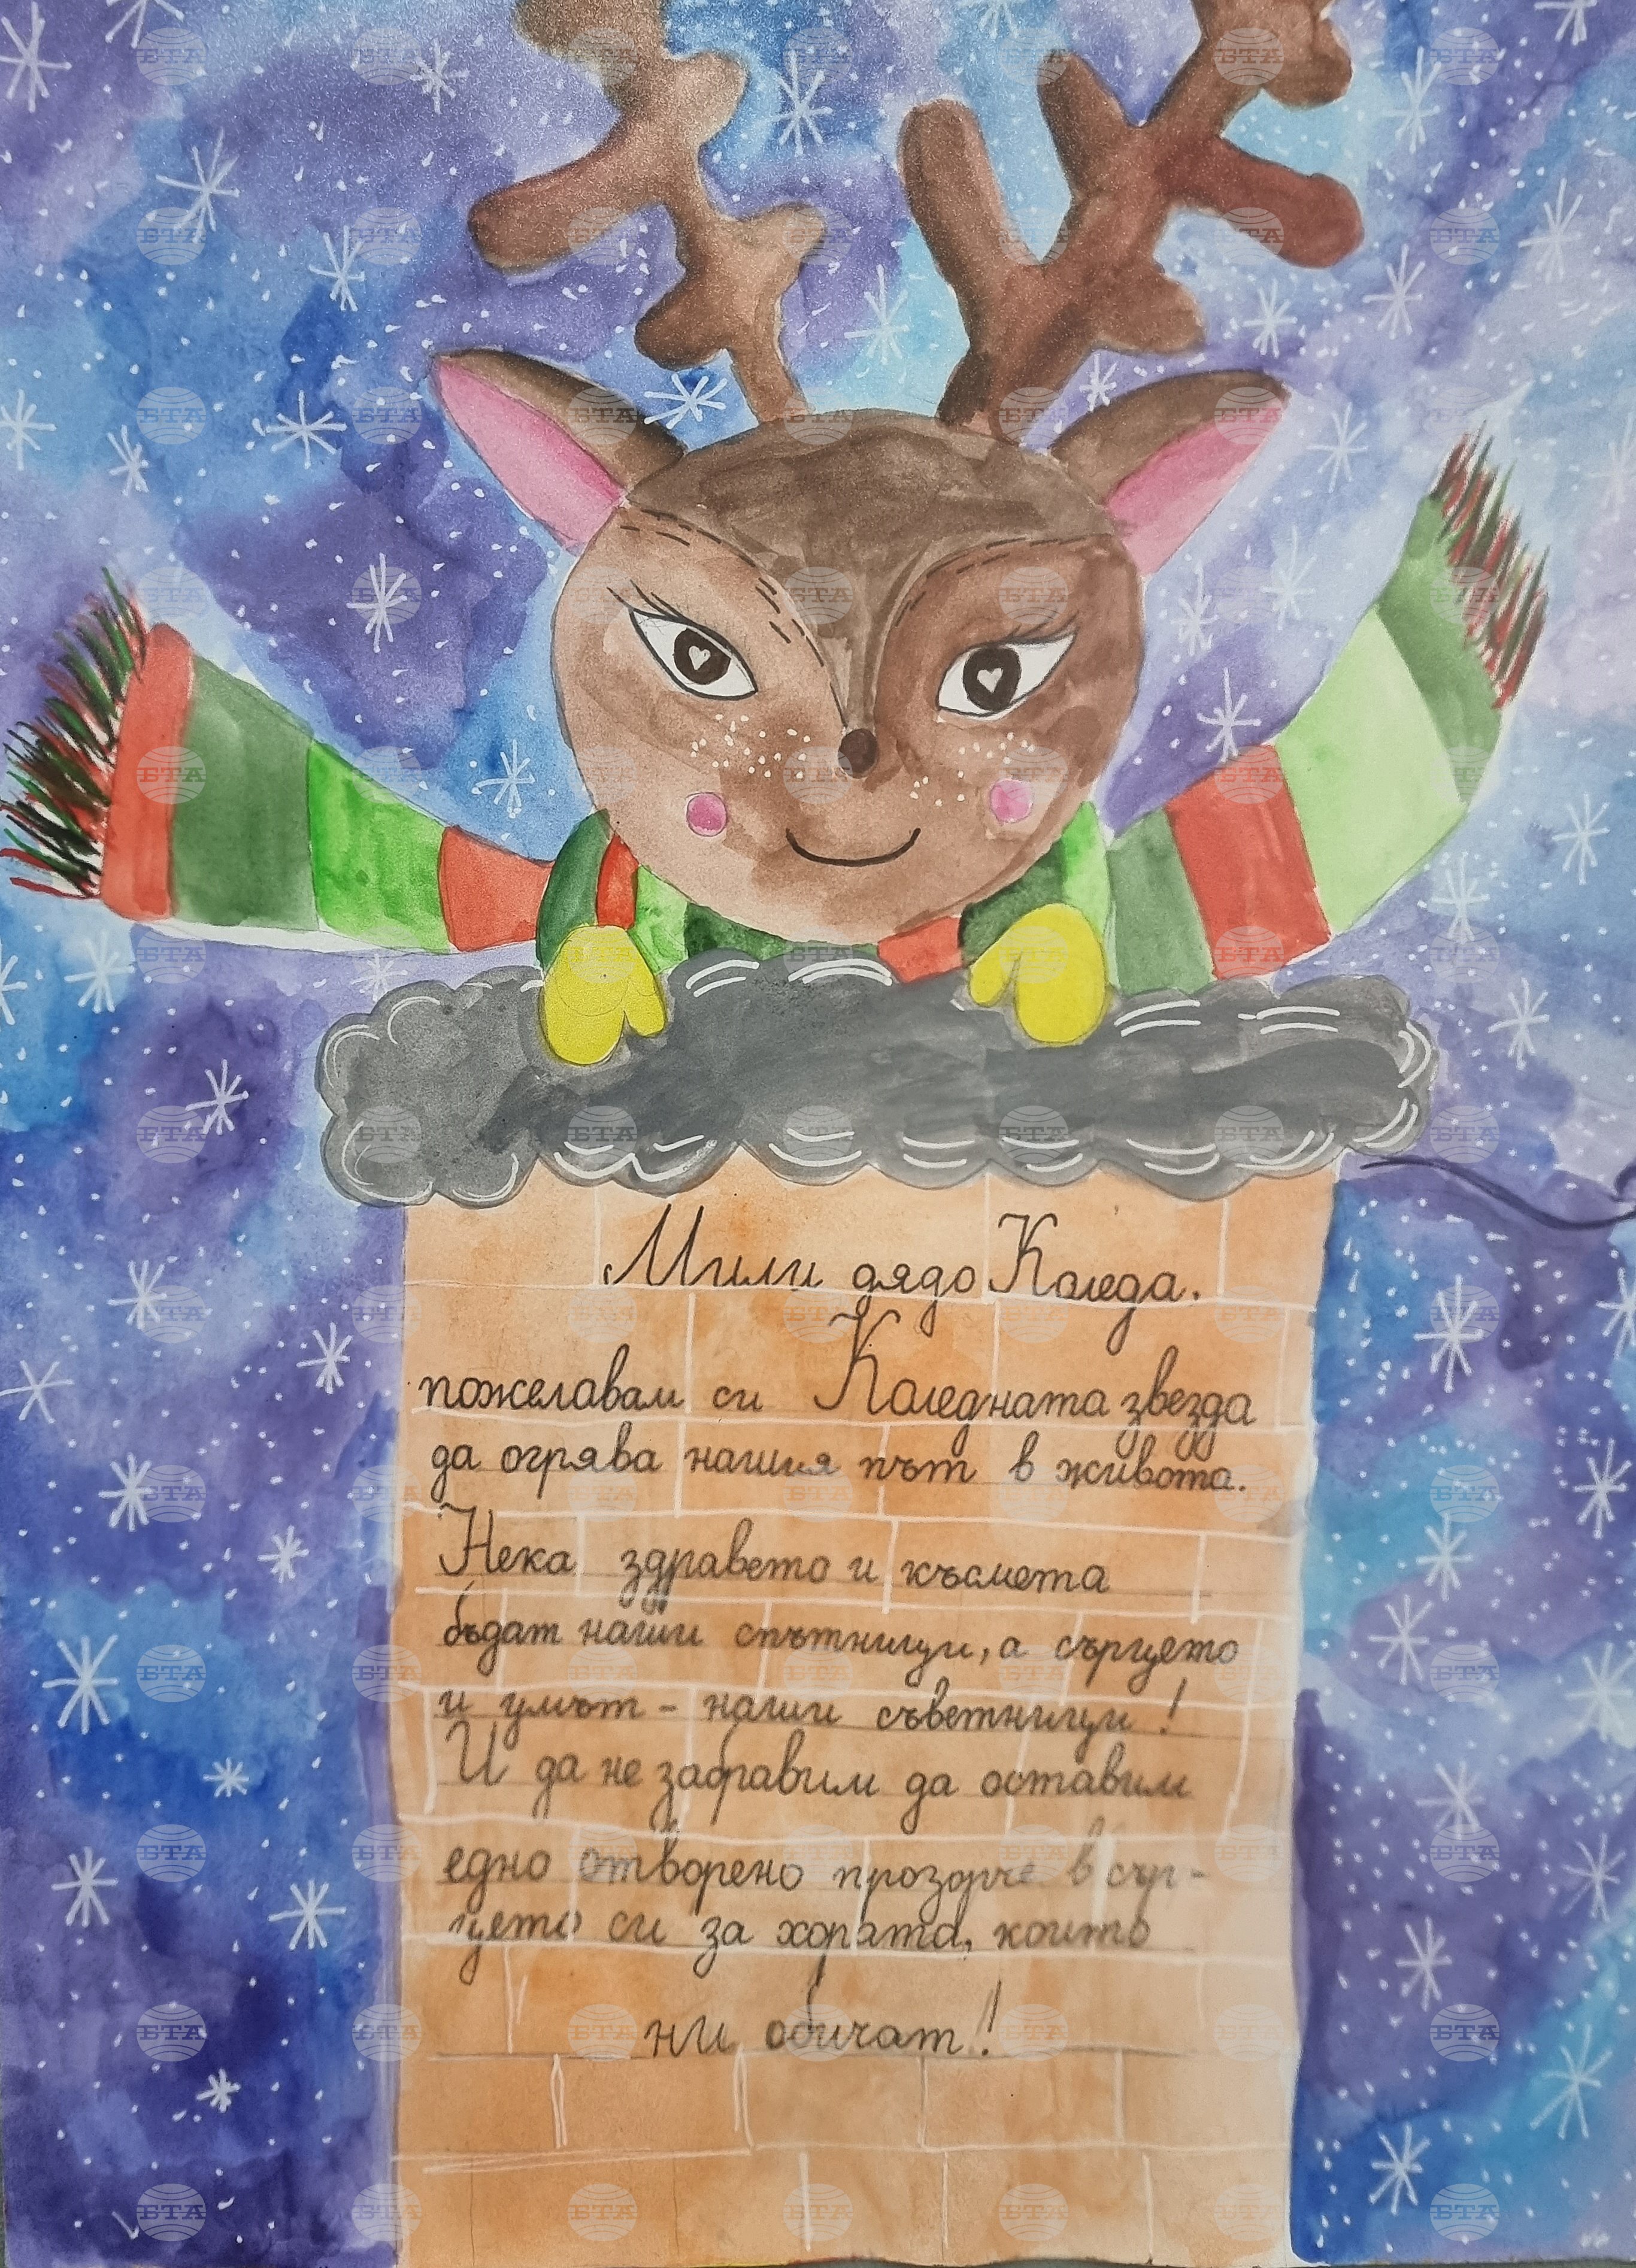 Мили дядо Коледа.
пожелавам си Коледната звезда
да огрява нашия път в живота.
Нека здравето и късмета
бъдат наши спътници, а сърцето
и умът - наши съветници!
И да не забравим да оставим
едно отворено прозорче в сър-
цето си за хората, които
ни обичат!
БТА